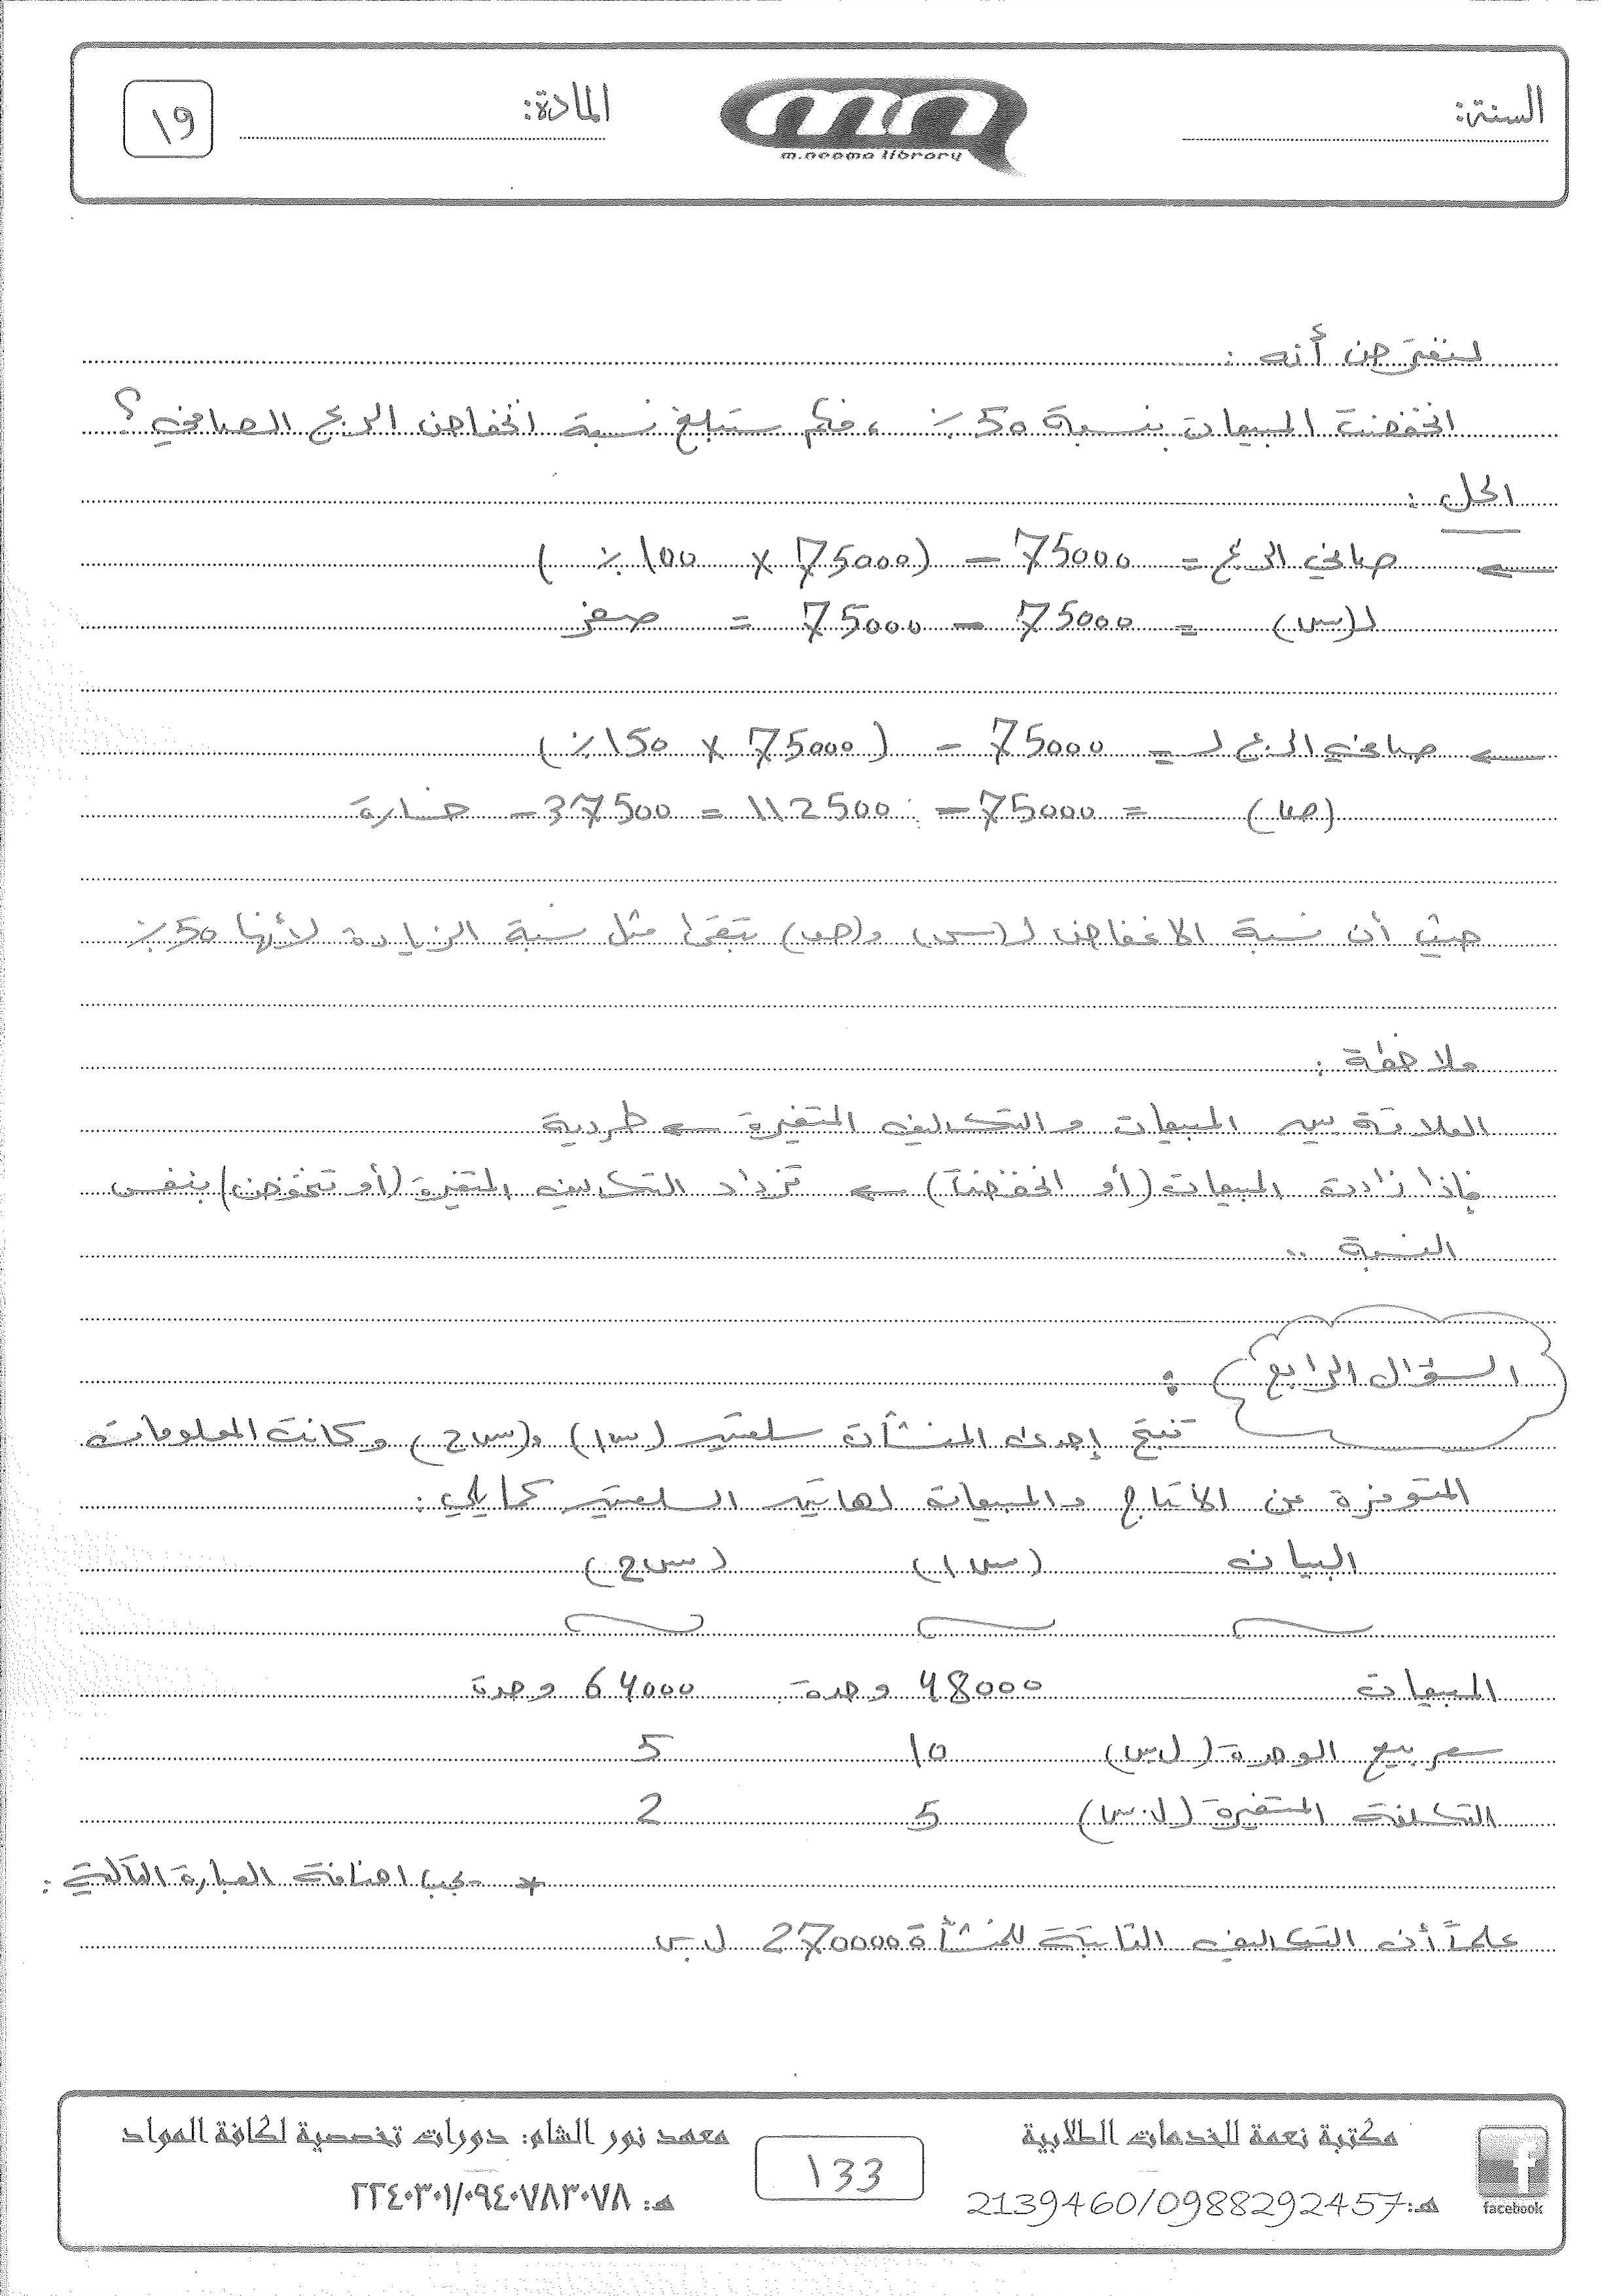 السنة:
m.neama library
المادة:
١٩
لنفترض أنه :
انخفضت المبيعات بنسبة 50٪ ، فكم ستبلغ نسبة انخفاض الربح الصافي ؟
الحل :
← صافي الربح = 75000 - (75000 × 100٪)
لـ(س) = 75000 - 75000 = صفر
← صافي الربح لـ = 75000 - (75000 × 150٪)
(ص) = 75000 - 112500 = 37500- خسارة
حيث أن نسبة الانخفاض لـ(س) و(ص) تبقى مثل نسبة الزيادة لأنها 50٪
ملاحظة :
العلاقة بين المبيعات والتكاليف المتغيرة ← طردية
فإذا زادت المبيعات (أو انخفضت) ← تزداد التكاليف المتغيرة (أو تنخفض) بنفس
النسبة ..
السؤال الرابع :
تنتج إحدى المنشآت سلعتين (س1) و(س2) وكانت المعلومات
المتوفرة عن الانتاج والمبيعات لهاتين السلعتين كمايلي :
البيان (س1) (س2)
المبيعات 48000 وحدة 64000 وحدة
سعر بيع الوحدة (ل.س) 10 5
التكلفة المتغيرة (ل.س) 5 2
* يجب اضافة العبارة التالية :
علماً أن التكاليف الثابتة للمنشأة 270000 ل.س
مكتبة نعمة للخدمات الطلابية
هـ: 2139460/0988292457
facebook
133
معهد نور الشام: دورات تخصصية لكافة المواد
هـ: ٢٢٤٠٣٠١/٠٩٤٠٧٨٣٠٧٨